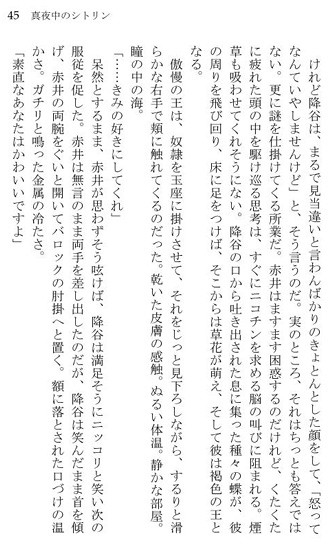 45 真夜中のシトリン
けれど降谷は、まるで見当違いと言わんばかりのきょとんとした顔をして、「怒って
なんていやしませんけど」と、そう言うのだ。実のところ、それはちっとも答えでは
ない。更に謎を仕掛けてくる所業だ。赤井はますます困惑するのだけれど、くたくた
に疲れた頭の中を駆け巡る思考は、すぐにニコチンを求める脳の叫びに阻まれる。煙
草も吸わせてくれそうにない。降谷の口から吐き出された息に集った種々の蝶が、彼
の周りを飛び回り、床に足をつけば、そこからは草花が萌え、そして彼は褐色の王と
なる。
傲慢の王は、奴隷を玉座に掛けさせて、それをじっと見下ろしながら、するりと滑
らかな右手で頬に触れてくるのだった。乾いた皮膚の感触。ぬるい体温。静かな部屋。
瞳の中の海。
「……きみの好きにしてくれ」
呆然とするまま、赤井が思わずそう呟けば、降谷は満足そうにニッコリと笑い次の
服従を促した。赤井は無言のまま両手を差し出したのだが、降谷は笑んだまま首を傾
げ、赤井の両腕をぐいと開いてバロックの肘掛へと置く。額に落とされた口づけの温
かさ。ガチリと鳴った金属の冷たさ。
「素直なあなたはかわいいですよ」